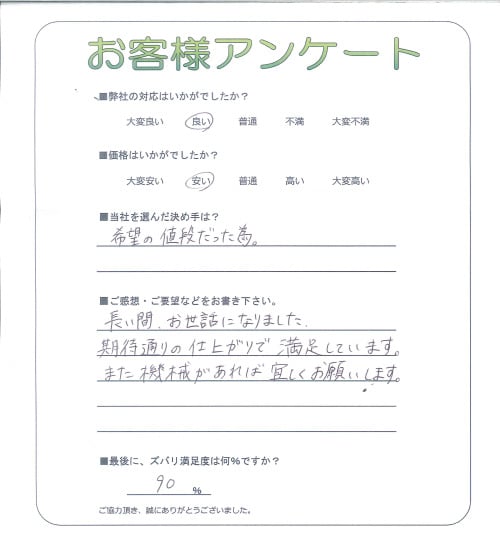 お客様アンケート
■弊社の対応はいかがでしたか?
大変良い 良い 普通 不満 大変不満
■価格はいかがでしたか?
大変安い 安い 普通 高い 大変高い
■当社を選んだ決め手は?
希望の値段だった為。
■ご感想・ご要望などをお書き下さい。
長い間、お世話になりました.
期待通りの仕上がりで満足しています。
また機械があれば宜しくお願いします。
■最後に、ズバリ満足度は何%ですか?
90 %
ご協力頂き、誠にありがとうございました。